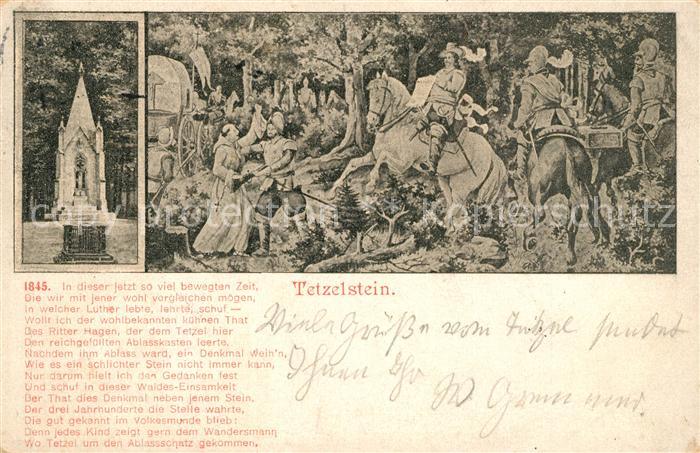 copyright protection ** Kopierschutz
1845. In dieser jetzt so viel bewegten Zeit,
Die wir mit jener wohl vergleichen mögen,
In welcher Luther lebte, lehrte, schuf —
Wollt ich der wohlbekannten kühnen That
Des Ritter Hagen, der dem Tetzel hier
Den reichgefüllten Ablasskasten leerte,
Nachdem ihm Ablass ward, ein Denkmal weih'n,
Wie es ein schlichter Stein nicht immer kann,
Nur darum hielt ich den Gedanken fest
Und schuf in dieser Waldes-Einsamkeit
Der That dies Denkmal neben jenem Stein,
Der drei Jahrhunderte die Stelle wahrte,
Die gut gekannt im Volkesmunde blieb:
Denn jedes Kind zeigt gern dem Wandersmann
Wo Tetzel um den Ablassschatz gekommen.
Tetzelstein.
Viele Grüße vom Tetzel sendet
Ihnen Ihr
W